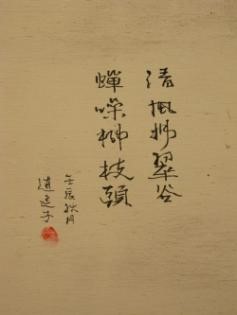 清風拂翠谷
蟬噪柳枝頭
壬辰秋月
逍遥子